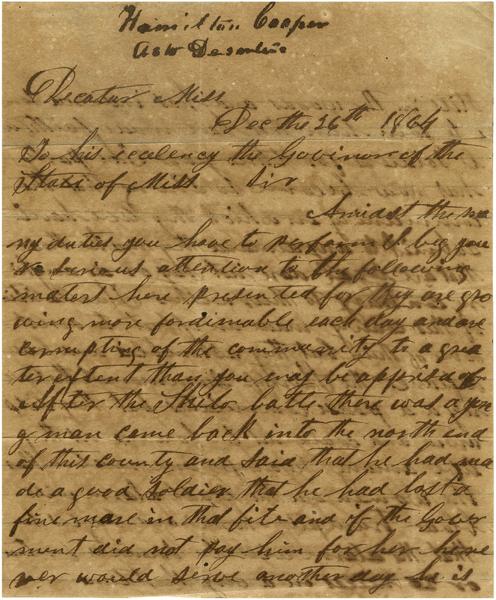 Hamilton Cooper
Decatur Miss
Dec the 26th 1864
To his exalency the Govinor of the
State of Miss Sir
Amidst the ma
ny duties you have to perform I beg you
re serious attention to the following
maters here presented for they are gro
wing more fordimable each day and are
corrupting of the community to a grea
ter extent than you may be apprised of
After the Shilo batle there was a youn
g man came back into the north end
of this county and said that he had ma
de a good soldier that he had lost a
fine mare in that fite and if the Gover
ment did not pay him for her he ne
ver would serve another day he is